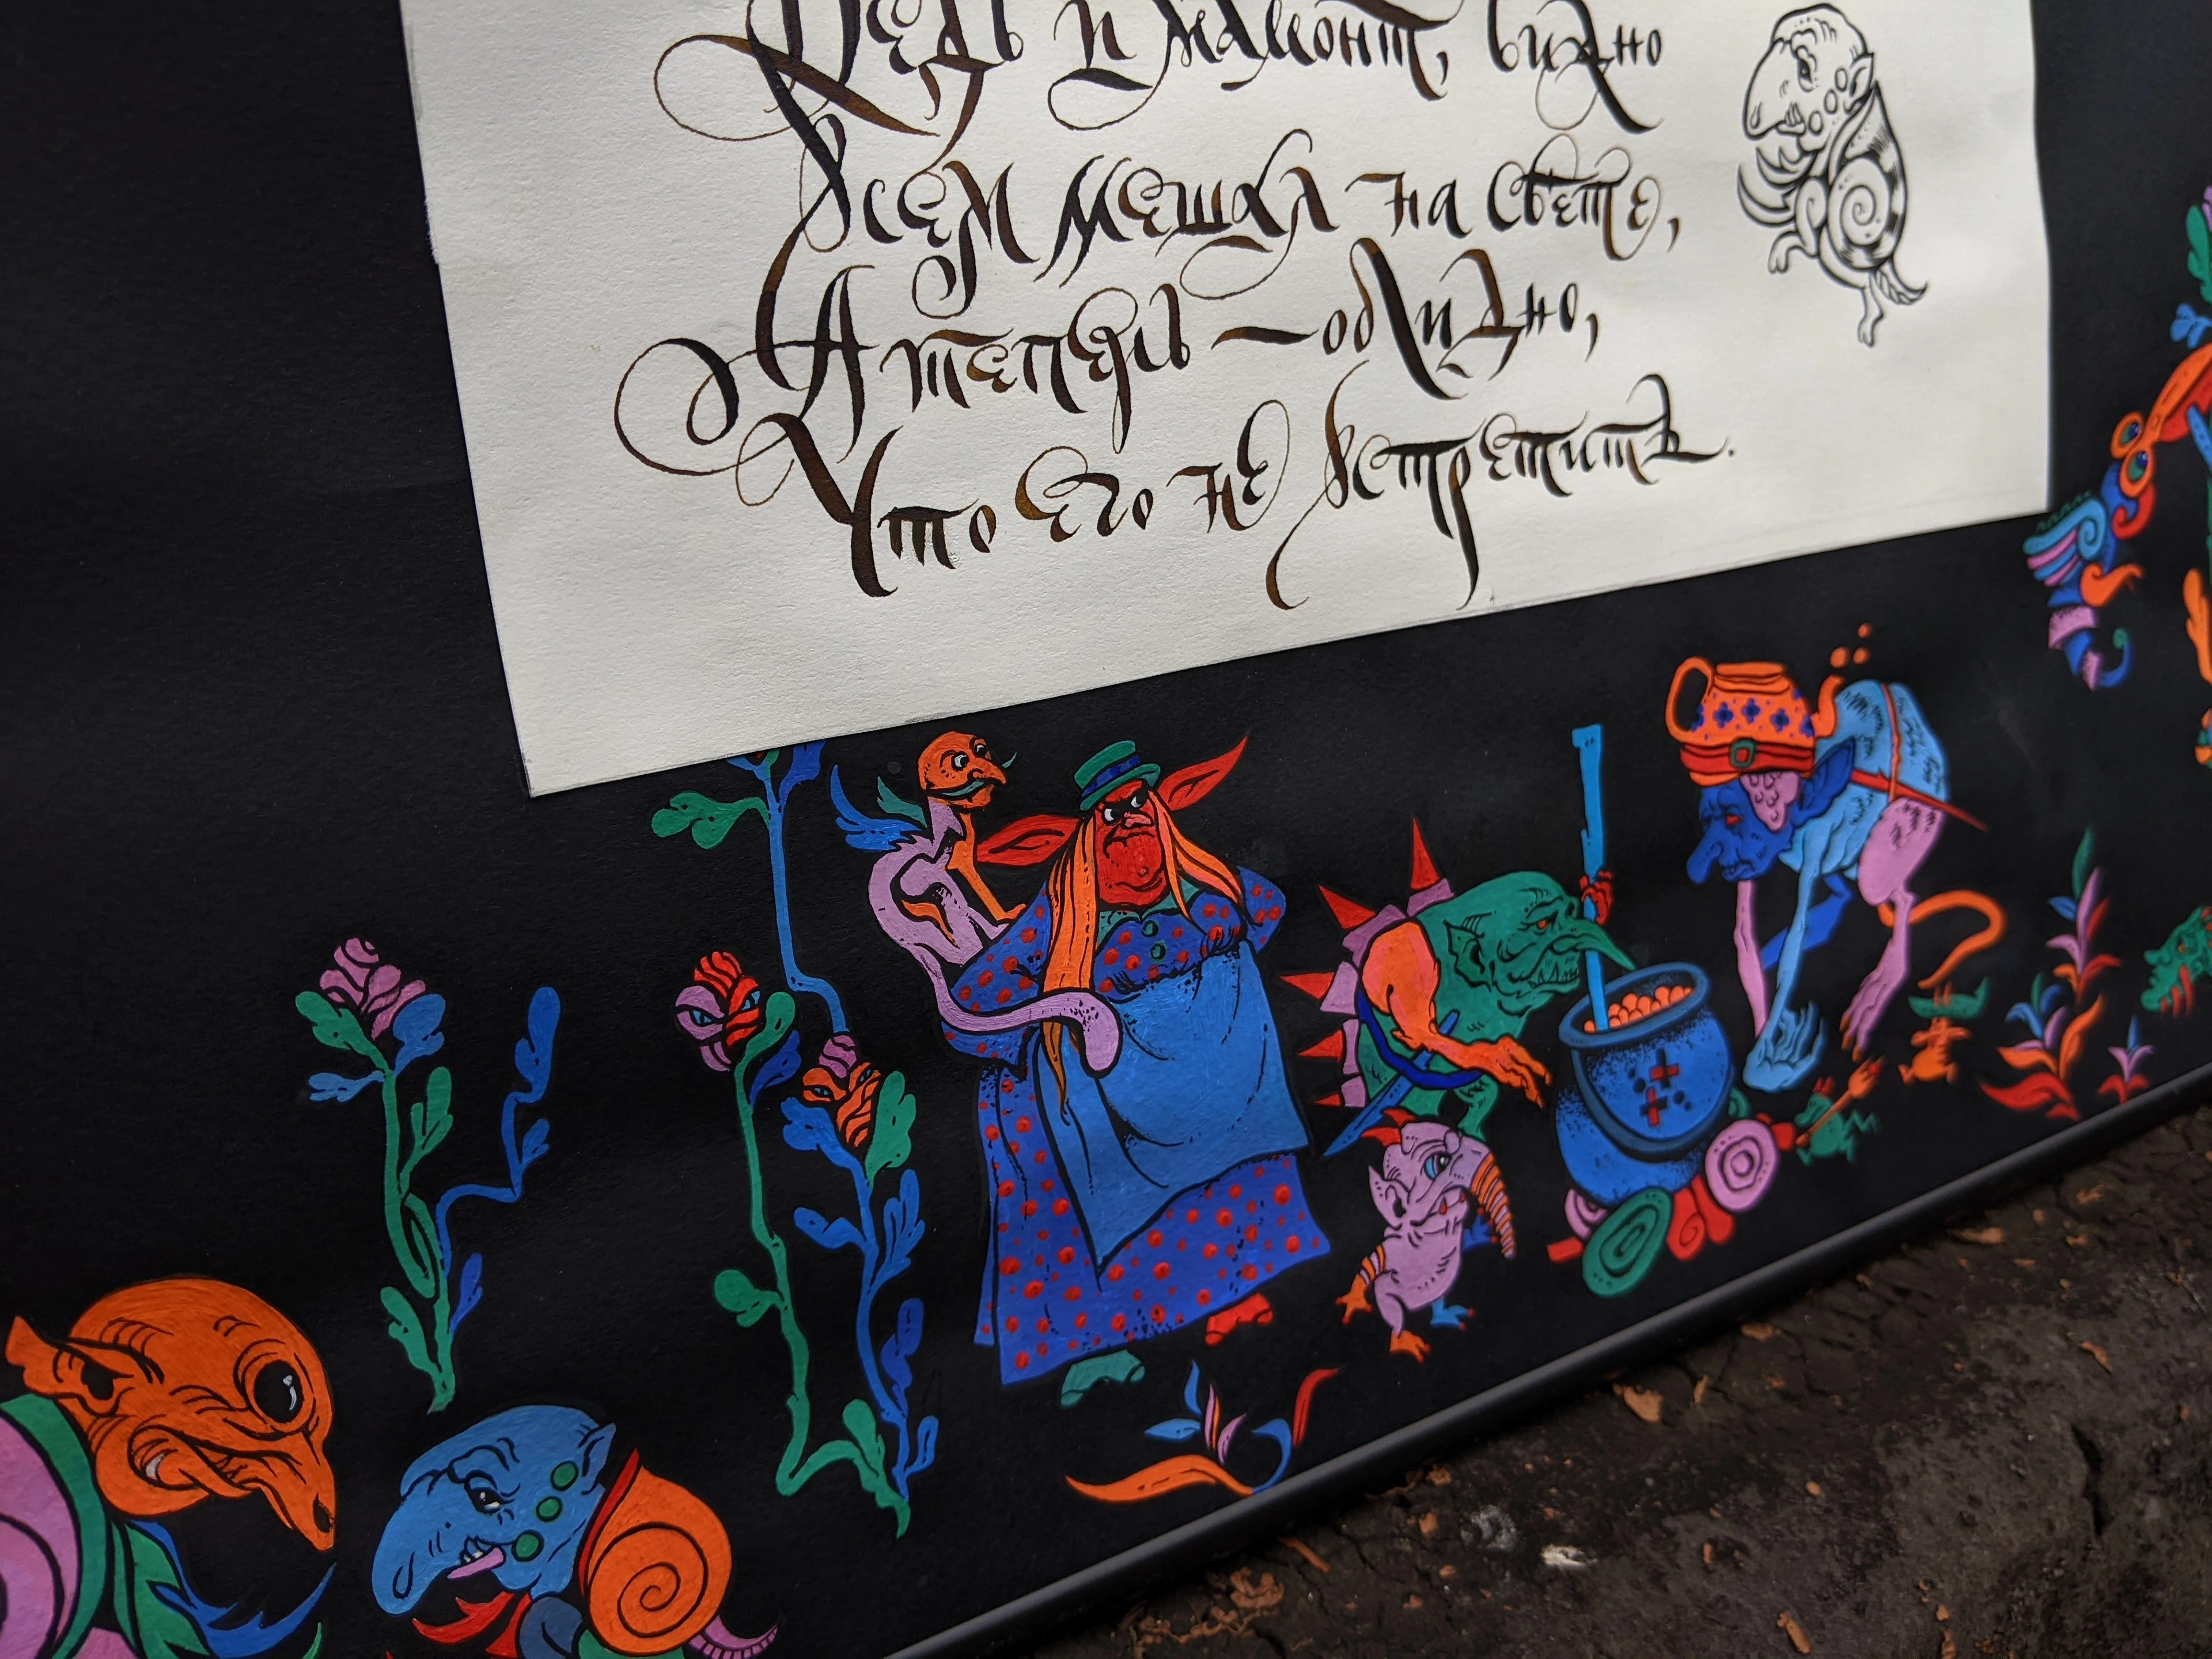 Ведь и мамонт, видно
Всем мешал на свете,
А теперь — обидно,
Что его не встретить.